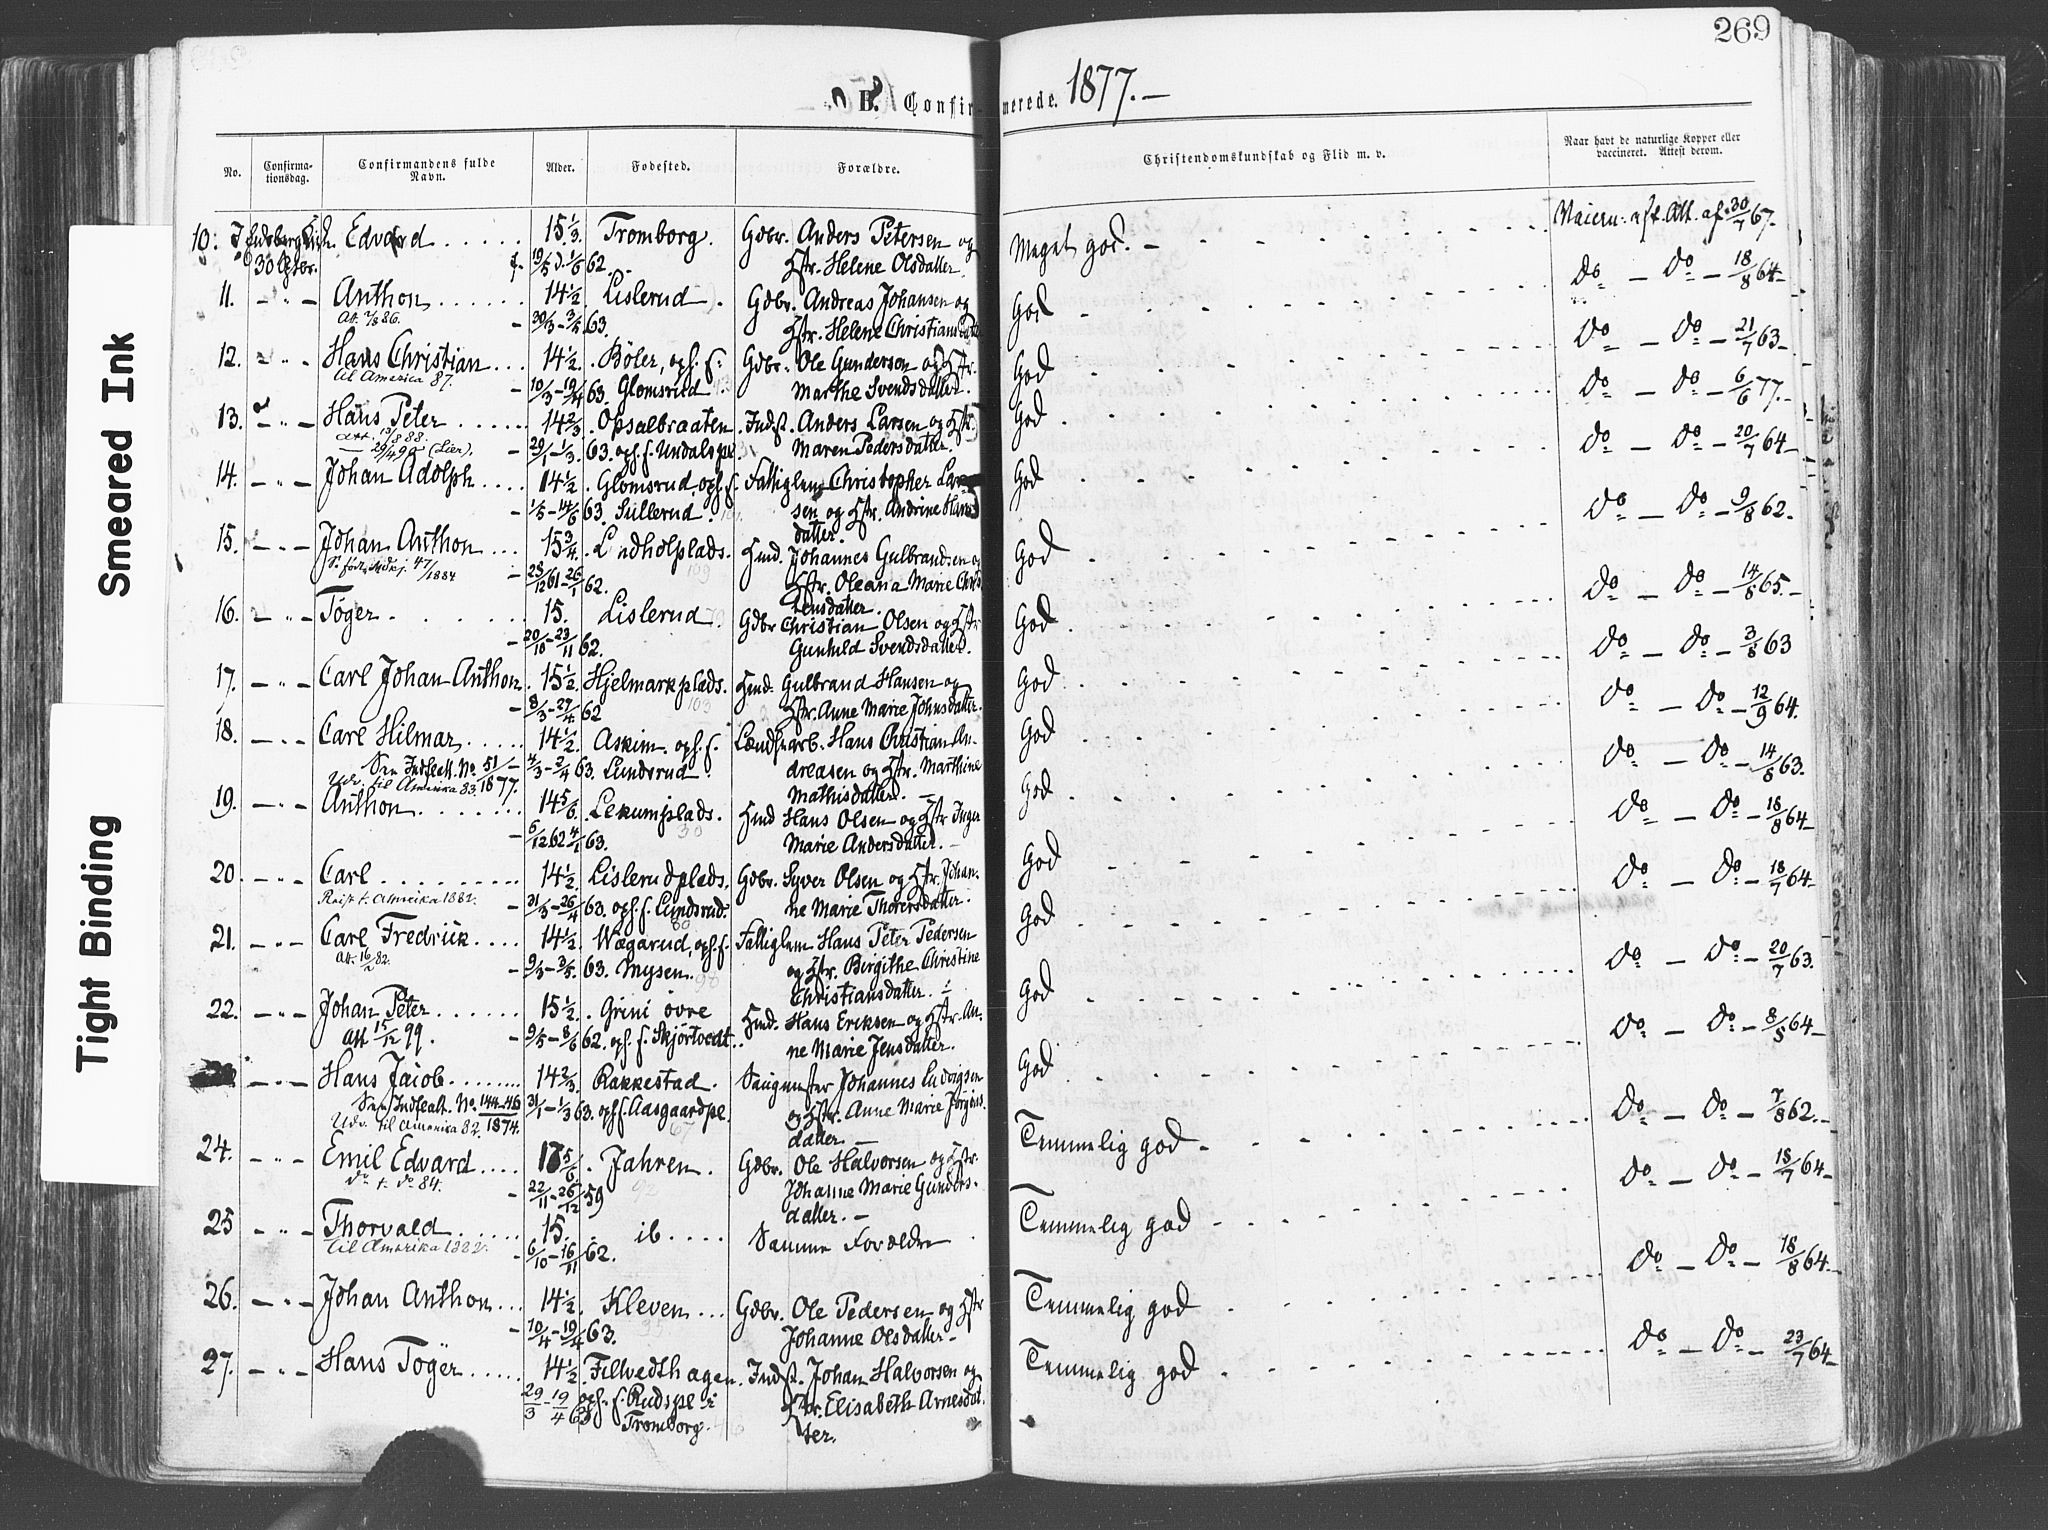 269
B. Confirmerede. 1877.—
No.
Confirma-
tionsdag.
Confirmandens fulde
Navn.
Alder.
Fødested.
Forældre.
Christendomskundskab og Flid m. v.
Naar havt de naturlige Kopper eller
vaccineret. Attest derom.
10. Edvard 15 1/3 Tromborg. Gdbr. Anders Petersen og Meget god. — Vaccin. Att. af 30/7 67.
30 19/5 d. 1/6 62. Hstr. Helene Olsdatter
11. — " — Anthon 14 1/2 Lislerud. Gdbr. Andreas Johansen og God do — do — 18/8 64 —
Att. 7/8 86. — 30/3 – 3/5 63. Hstr. Helene Christiansdatter
12. — " — Hans Christian 14 1/2 Böler, oph. f. Gdbr. Ole Gundersen og Hstr. God do — do — 21/7 63 —
til America 87. — 10/3 – 19/4 63. Glomsrud. Marthe Svendsdatter.
13. — " — Hans Peter 14 2/3 Opsalbraaten Indst. Anders Larsen og Hstr. God do — do — 6/6 77. —
att. 13/8 88.
— 29/4 90 (Lier). — 29/1 – 1/3 63. oph. f. Undalspl. Maren Pedersdatter.
14. — " — Johan Adolph 14 1/2 Glomsrud, oph. f. Fattiglem Christopher Lar- God do — do — 20/7 64 —
— 1/5 – 14/6 63. Sullerud. sen og Hstr. Andrine Hans
datter.
15. — " — Johan Anthon 15 3/4 Lundholplads. Hmd. Johannes Gulbrandsen og God do — do — 9/8 62.
47/1884 — 28/12 61 – 26/1 62. Hstr. Oleana Marie Chris
tensdatter.
16. — " — Töger 15. Lislerud Gdbr Christian Olsen og Hstr God do — do — 14/8 65. —
— 20/10 – 23/11 62. Gunhild Svendsdatter.
17. — " — Carl Johan Anthon 15 1/2 Hjelmarkplads. Hmd. Gulbrand Hansen og God do — do — 3/8 63
— 8/3 – 27/4 62 103 Hstr. Anne Marie Johnsdatter.
18. — " — Carl Hilmar 14 1/2 Askim, oph. f. Hans Christian An- God do — do — 12/9 64.
Sen Indflatt. No. 51/1877. 4/3 – 2/4 63. Lundsrud. dreasen og Hstr. Marthine
Udv. til Amerika 83. Mathisdatter. —
19. — " — Anthon 14 5/6 Lekumplads. Hmd Hans Olsen og Hstr Inger God do — do — 14/8 63.
— 5/12 62 4/1 63. 30 Marie Andersdatter. —
20. — " — Carl 14 1/2 Lislerudplads. Gdbr. Syver Olsen og Hstr. Johan- God do — do — 18/8 64 —
Reist t. Amerika 1882. — 31/3 – 26/4 63. oph. f. Lundsrud. ne Marie Thorersdatter.
21. — " — Carl Fredrik 14 1/2 Wægarud, oph. f. Fattiglem Hans Peter Pedersen God do — do — 18/7 64 —
Att. 16/2 82. — 9/3 – 3/5 63. Mysen. og Hstr. Birgithe Christine
Christiansdatter.
22. — " — Johan Peter 15 1/2 Grini övre Hmd. Hans Eriksen og Hstr. An- God do — do — 20/7 63.
Att 15/12 99. — 9/5 – 8/6 62. oph. f. Skjörtvedt. ne Marie Jensdatter.
— " — Hans Jacob 14 2/3 Rakkestad. Sangmester Johannes Ludvigsen God do — do — 8/5 64 —
Sen Indflatt. No. 144-46/1874. 31/1 – 1/3 63. oph. f. Aasgaardpl. og Hstr. Anne Marie Jörgins
Udv. til Amerika 82. 67 datter. —
24. — " — Emil Edvard 17 5/6 Jahren. Gdbr. Ole Halvorsen og Hstr. Temmelig god — do — do — 7/8 62. —
do t. do 84. — 22/11 – 26/12 59 92 Johanne Marie Gunders-
datter. —
25 — " — Thorvald 15. ib Samme Forældre Temmelig god do — do — 18/7 64 —
til Amerika 1882. — 6/10 – 16/11 62.
26. — " — Johan Anthon 14 1/2 Kleven Gdbr. Ole Pedersen og Hstr Temmelig god do — do — 18/8 64 —
— 10/4 – 19/4 63. Johanne Olsdatter —
27. — " — Hans Töger 14 1/2 Filtvedthagen Indst. Johan Halvorsen og Temmelig god do — do — 23/7 64 —
29/3 – 19/4 63 oph. f. Rudspl i Hstr. Elisabeth Arnesdat
Tromborg. ter.
Smeared Ink
Tight Binding